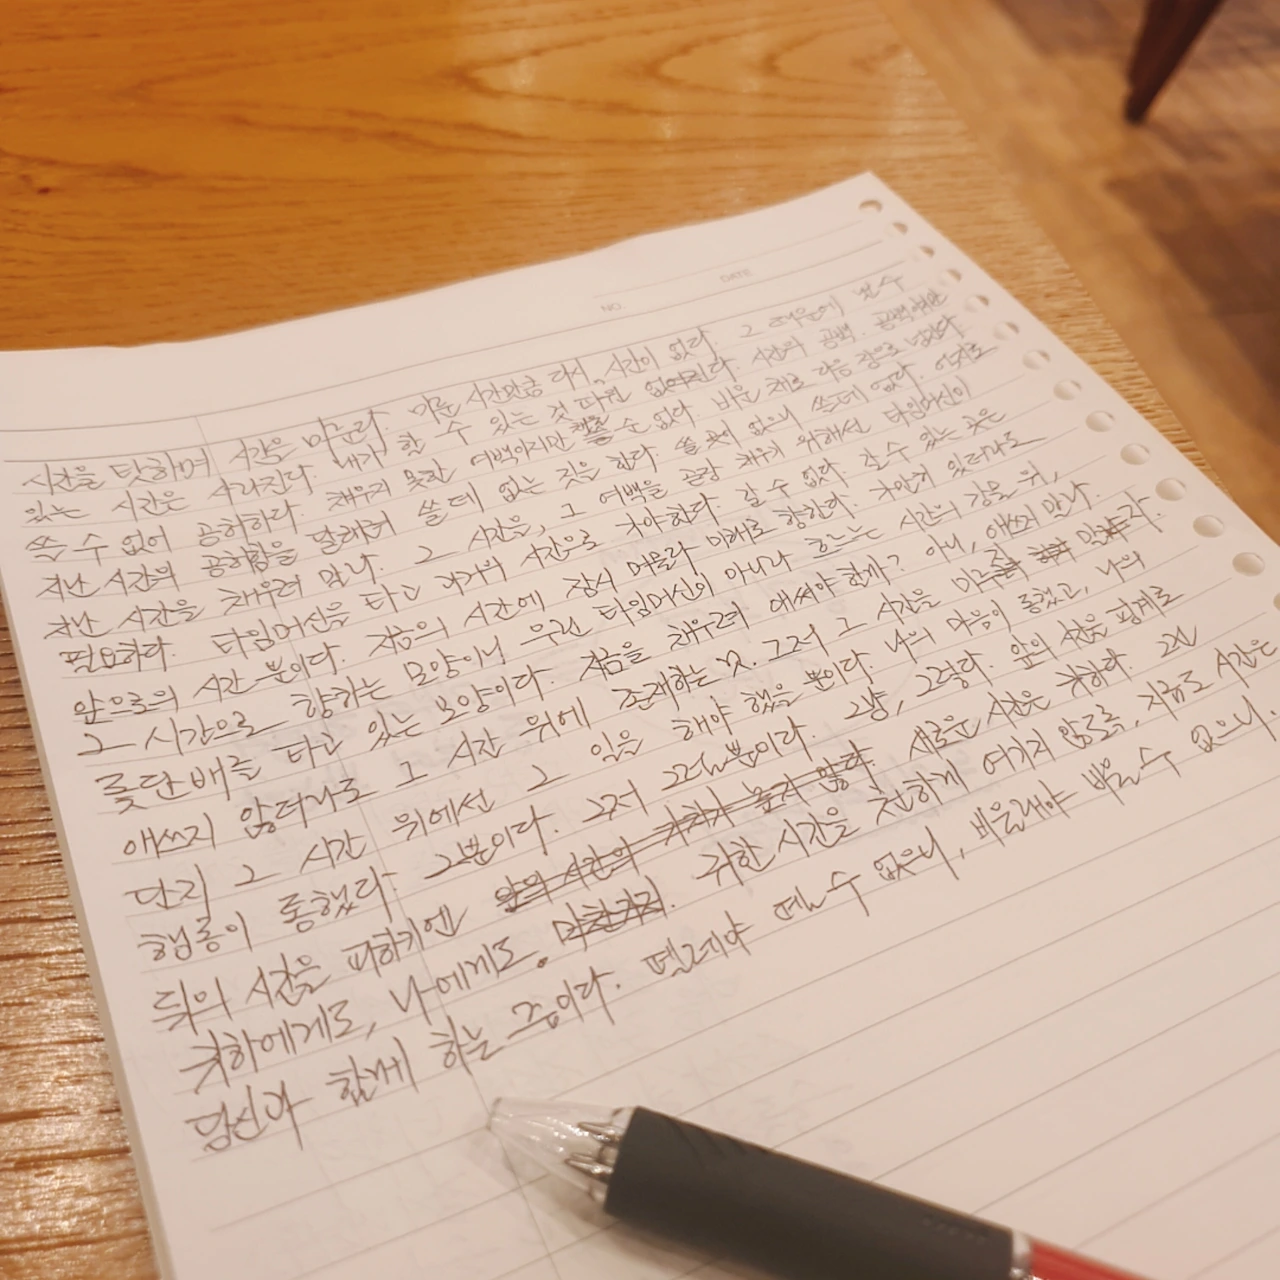 NO.
DATE
시간을 탓하며 시간을 미룬다. 미룬 시간만큼 다시, 시간이 없다. 그 때문에 쓸 수
있는 시간은 사라진다. 내가 할 수 있는 것 따윈 없어진다. 시간의 공백. 공백이지만
쓸 수 없어 공허하다. 채우지 못한 여백이지만 채울 순 없다. 비운 채로 다음 장으로 넘긴다
지난 시간의 공허함을 달래려 쓸데 없는 짓을 한다. 쓸 곳이 없으니 쓸데 없다. 억지로
지난 시간을 채우려 한다. 그 시간을, 그 여백을 곧장 채우기 위해선 타임머신이
필요하다. 타임머신을 타고 과거의 시간으로 가야한다. 갈 수 없다. 갈 수 있는 곳은
앞으로의 시간 뿐이다. 지금의 시간에 잠시 머물다 미래로 향한다. 가만히 있더라도
그 시간으로 향하는 모양이니 우린 타임머신이 아니라 흐르는 시간의 강물 위,
돛단배를 타고 있는 모양이다. 지금을 채우려 애써야 할까? 아니, 애쓰지 만다.
애쓰지 않더라도 그 시간 위에 존재하는 것. 그저 그 시간을
단지 그 시간 위에선 그 일을 해야 했을 뿐이다. 나의 마음이 통했고, 나의
행동이 통했다. 그뿐이다. 그저 그러할뿐이다. 그냥, 그렇다. 앞의 시간을 핑계로
뒤의 시간을 피하기엔 앞의 시간의 가치가 높지 않다. 새로운 시간은 귀하다. 그건
귀하에게도, 나에게도. 마찬가지. 귀한 시간을 천하게 여기지 않도록, 지금도 시간은
당신과 함께 하는 중이다. 뗄레야 뗄 수 없으니, 비울래야 비울 수 없으니.